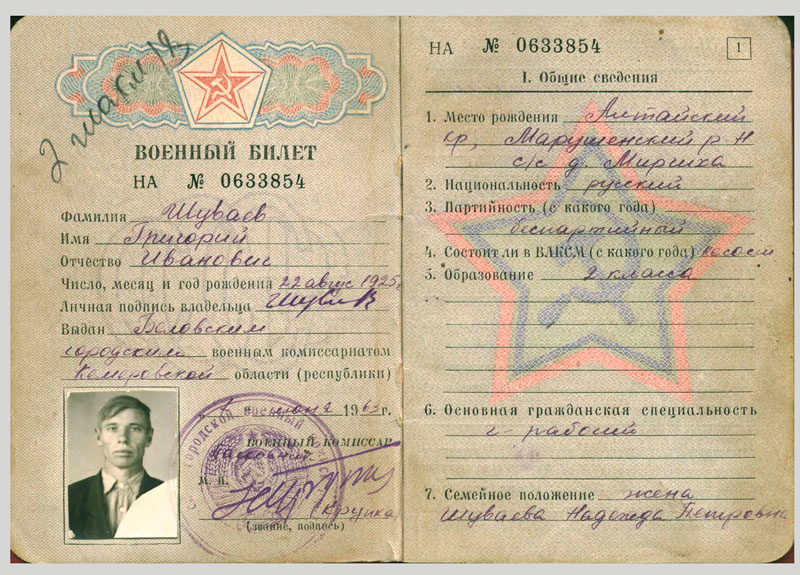 ВОЕННЫЙ БИЛЕТ
НА № 0633854
Фамилия Шуваев
Имя Григорий
Отчество Иванович
Число, месяц и год рождения 22 август 1925г
Личная подпись владельца
Выдан Беловским
городским военным комиссариатом
Кемеровской области (республики)
июня 1963 г.
ВОЕННЫЙ КОМИССАР
М. П.
(звание, подпись)
НА № 0633854
1
I. Общие сведения
1. Место рождения Алтайский
кр, Марушенский р-н
с/с д.
2. Национальность русский
3. Партийность (с какого года)
беспартийный
4. Состоит ли в ВЛКСМ (с какого года) не сост
5. Образование 2 класса
6. Основная гражданская специальность
рабочий
7. Семейное положение жена
Шуваева Надежда Петровна